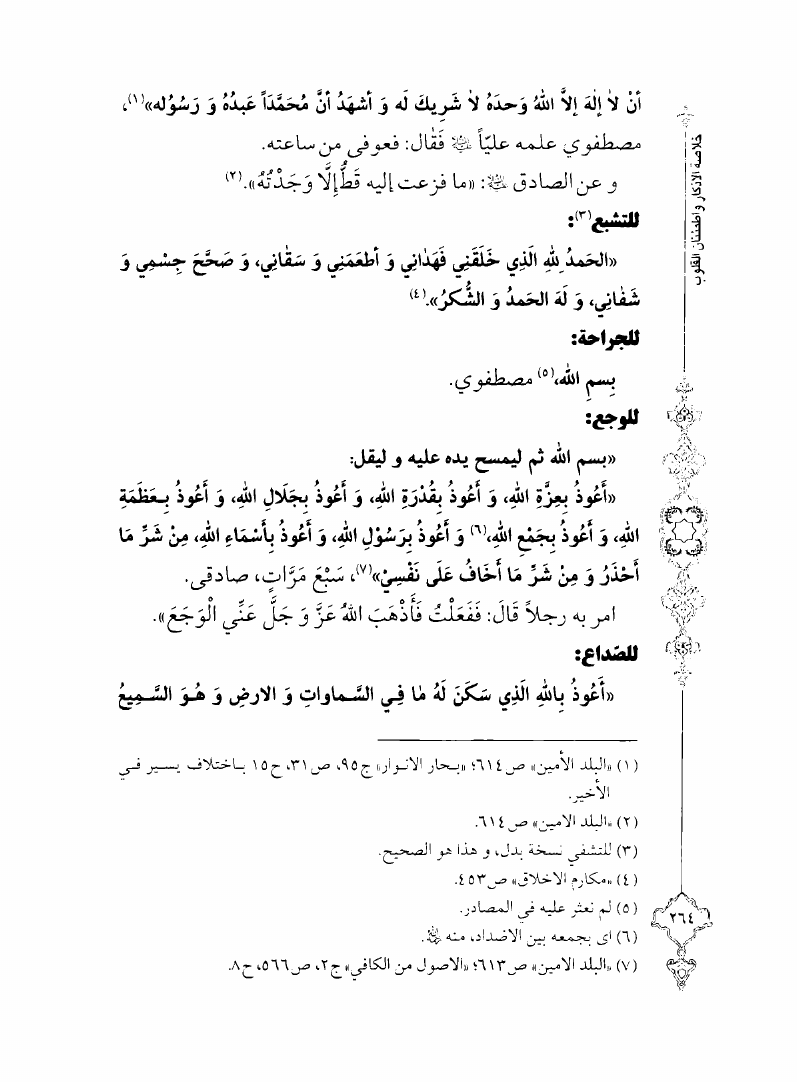 أنْ لاٰ إلٰهَ إلاَّ اللهُ وَحدَهُ لاٰ شَرِيكَ لَه وَ أشهَدُ أنَّ مُحَمَّدَاً عَبدُهُ وَ رَسُوْله»(١)،
مصطفوي علمه عليّاً فَقٰال: فعوفى من ساعته.
و عن الصادق: «ما فزعت إليه قَطُّ إلَّا وَجَدْتُهُ».(٢)
للتشبع(٣):
«الحَمدُ لِلّٰهِ الَّذِي خَلَقَنِي فَهَدٰانِي وَ أطعَمَنِي وَ سَقٰانِي، وَ صَحَّحَ جِسْمِي وَ
شَفٰانِي، وَ لَهَ الحَمدُ وَ الشُّكرُ».(٤)
للجراحة:
بِسمِ الله،(٥) مصطفوي.
للوجع:
«بسم الله ثم ليمسح يده عليه و ليقل:
«أَعُوذُ بِعِزَّةِ اللهِ، وَ أَعُوذُ بِقُدْرَةِ اللهِ، وَ أَعُوذُ بِجَلَالِ اللهِ، وَ أَعُوذُ بِعَظَمَةِ
اللهِ، وَ أَعُوذُ بِجَمْعِ اللهِ،(٦) وَ أَعُوذُ بِرَسُوْلِ اللهِ، وَ أَعُوذُ بِأَسْمَاءِ اللهِ، مِنْ شَرِّ مَا
أَحْذَرُ وَ مِنْ شَرِّ مَا أَخَافُ عَلَى نَفْسِيْ»(٧)، سَبْعَ مَرَّاتٍ، صادقى.
امر به رجلاً قَالَ: فَفَعَلْتُ فَأَذْهَبَ اللهُ عَزَّ وَ جَلَّ عَنِّي الْوَجَعَ».
للصّداع:
«أَعُوذُ بِاللهِ الَّذِي سَكَنَ لَهُ مٰا فِي السَّماواتِ وَ الارضِ وَ هُوَ السَّمِيعُ
(١) «البلد الأمين» ص٦١٤؛ «بحار الانوار» ج٩٥، ص٣١، ح١٥ باختلاف يسير في
الأخير.
(٢) «البلد الامين» ص٦١٤.
(٣) للتشفي نسخة بدل، و هذا هو الصحيح.
(٤) «مكارم الاخلاق» ص٤٥٣.
(٥) لم نعثر عليه في المصادر.
(٦) اى بجمعه بين الاضداد، منه.
(٧) «البلد الامين» ص٦١٣؛ «الاصول من الكافي» ج٢، ص٥٦٦، ح٨.
خلاصة الاذكار و اطمئنان القلوب
٢٦٤